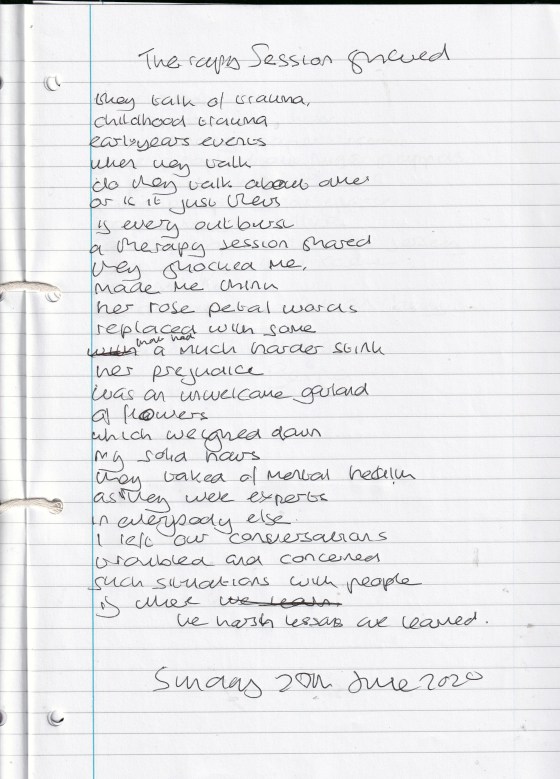 Therapy Session Shared
they talk of trauma,
childhood trauma
early years events
when they talk
do they talk about others
or is it just theirs
is every outburst
a therapy session shared
they shocked me,
made me think
her rose petal words
replaced with some
that had a much harder stink
her prejudice
was an unwelcome garland
of flowers
which weighed down
my solid
they talked of mental health
as they were experts
in everybody else.
I left our conversations
troubled and concerned
such situations with people
is where we learn.
the harsh lessons are learned.
Sunday 20th June 2020